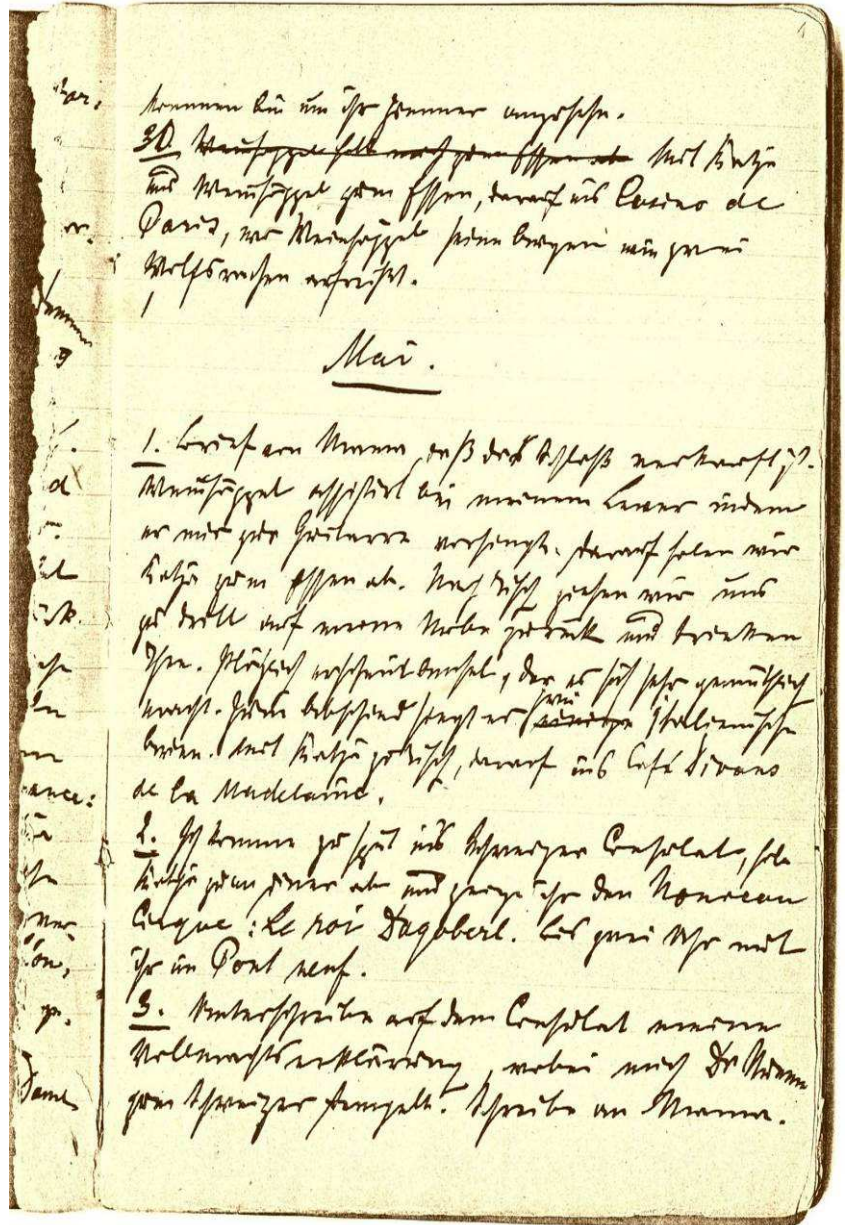 kommen bin um ihr Zimmer anzusehn.
30. Weinhöppel holt mich zum Essen ab Mit Katja
und Weinhöppel zum Essen, darauf ins Casino de
Paris, wo Weinhöppel seine Augen wie zwei
Wolfsrachen aufreißt.
Mai.
1. Brief von Mama, daß das Schloß verkauft ist.
Weinhöppel assistirt bei meinem Lever indem
er mir zur Guitarre vorsingt. Darauf holen wir
Katja zum Essen ab. Nach Tisch ziehen wir uns
zu dritt auf meine Bube zurück und trinken
Thee. Plötzlich erscheint der es sich sehr gemüthlich
macht. Zum Abschied singt er zwei italienische
Arien. Mit Katja zu Tisch, darauf ins Café Divans
de la Madelaine.
2. Ich komme zu spät ins Schweizer Consulat, hole
Katja zum Diner ab und zeige ihr den Nouveau
Cirque: Le roi Dagobert. Bis zwei Uhr mit
ihr im Pont neuf.
3. Unterschreibe auf dem Consulat meine
Vollmachtserklärung, wobei mich Dr
zum Schweizer stempelt. Schreibe an Mama.